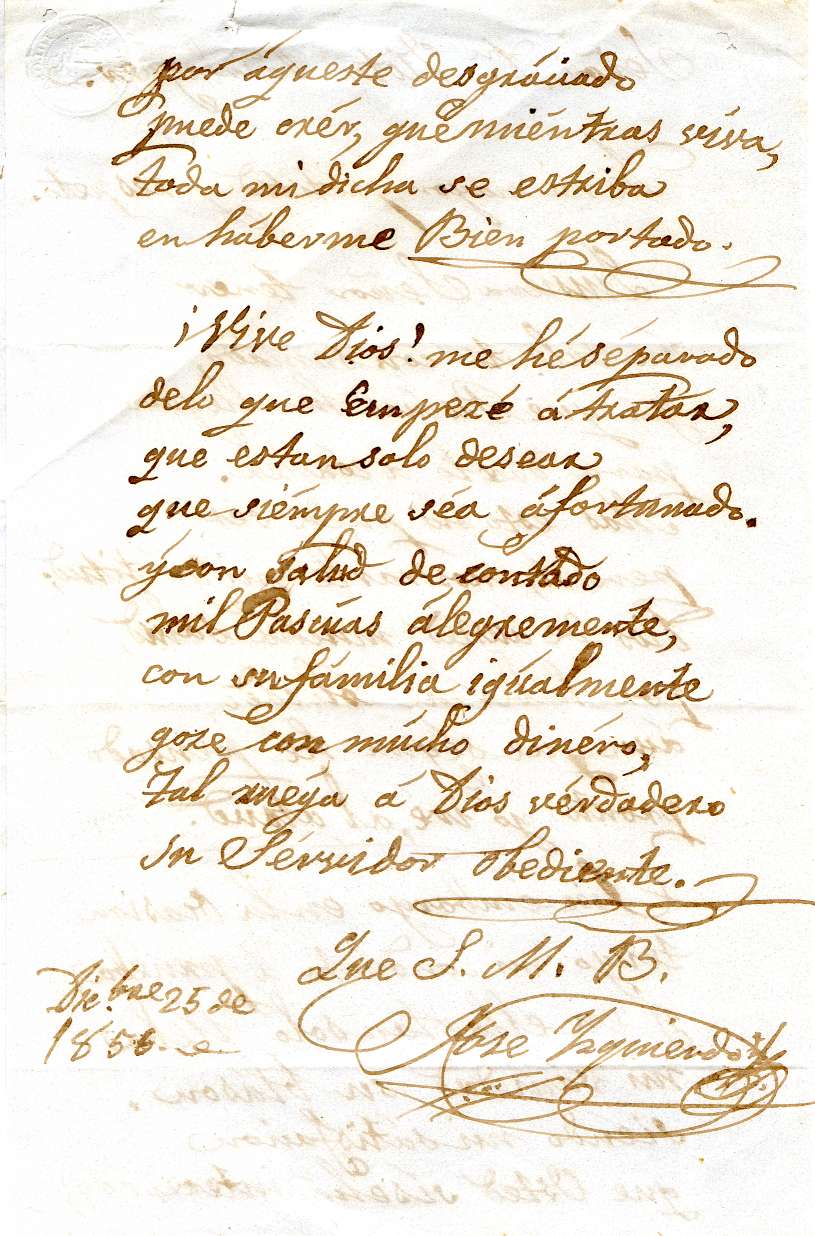 por áqueste desgráciado
puede crér, que miéntras viva,
toda mi dicha se estriba
en háberme Bien portado.
¡Vive Dios! me hé séparado
delo que Empezé á tratár,
que estan solo desear
que siémpre séa áfortunado.
y con salud de contado
mil Pascúas álegremente,
con su fámilia igúalmente
gozé con múcho dinéro,
Tal ruéga á Dios vérdadero
su Sérvidor obediente.
Que S. M. B.
Dic.bre 25 de
185
Jose Yzquierdo